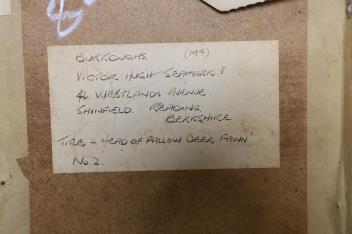 BURROUGHS (MR)
VICTOR HUGH SEAMARKS
46. WESTLANDS AVENUE.
SHINFIELD. READING.
BERKSHIRE.
TITLE - HEAD OF FALLOW DEER FAWN
No. 2.